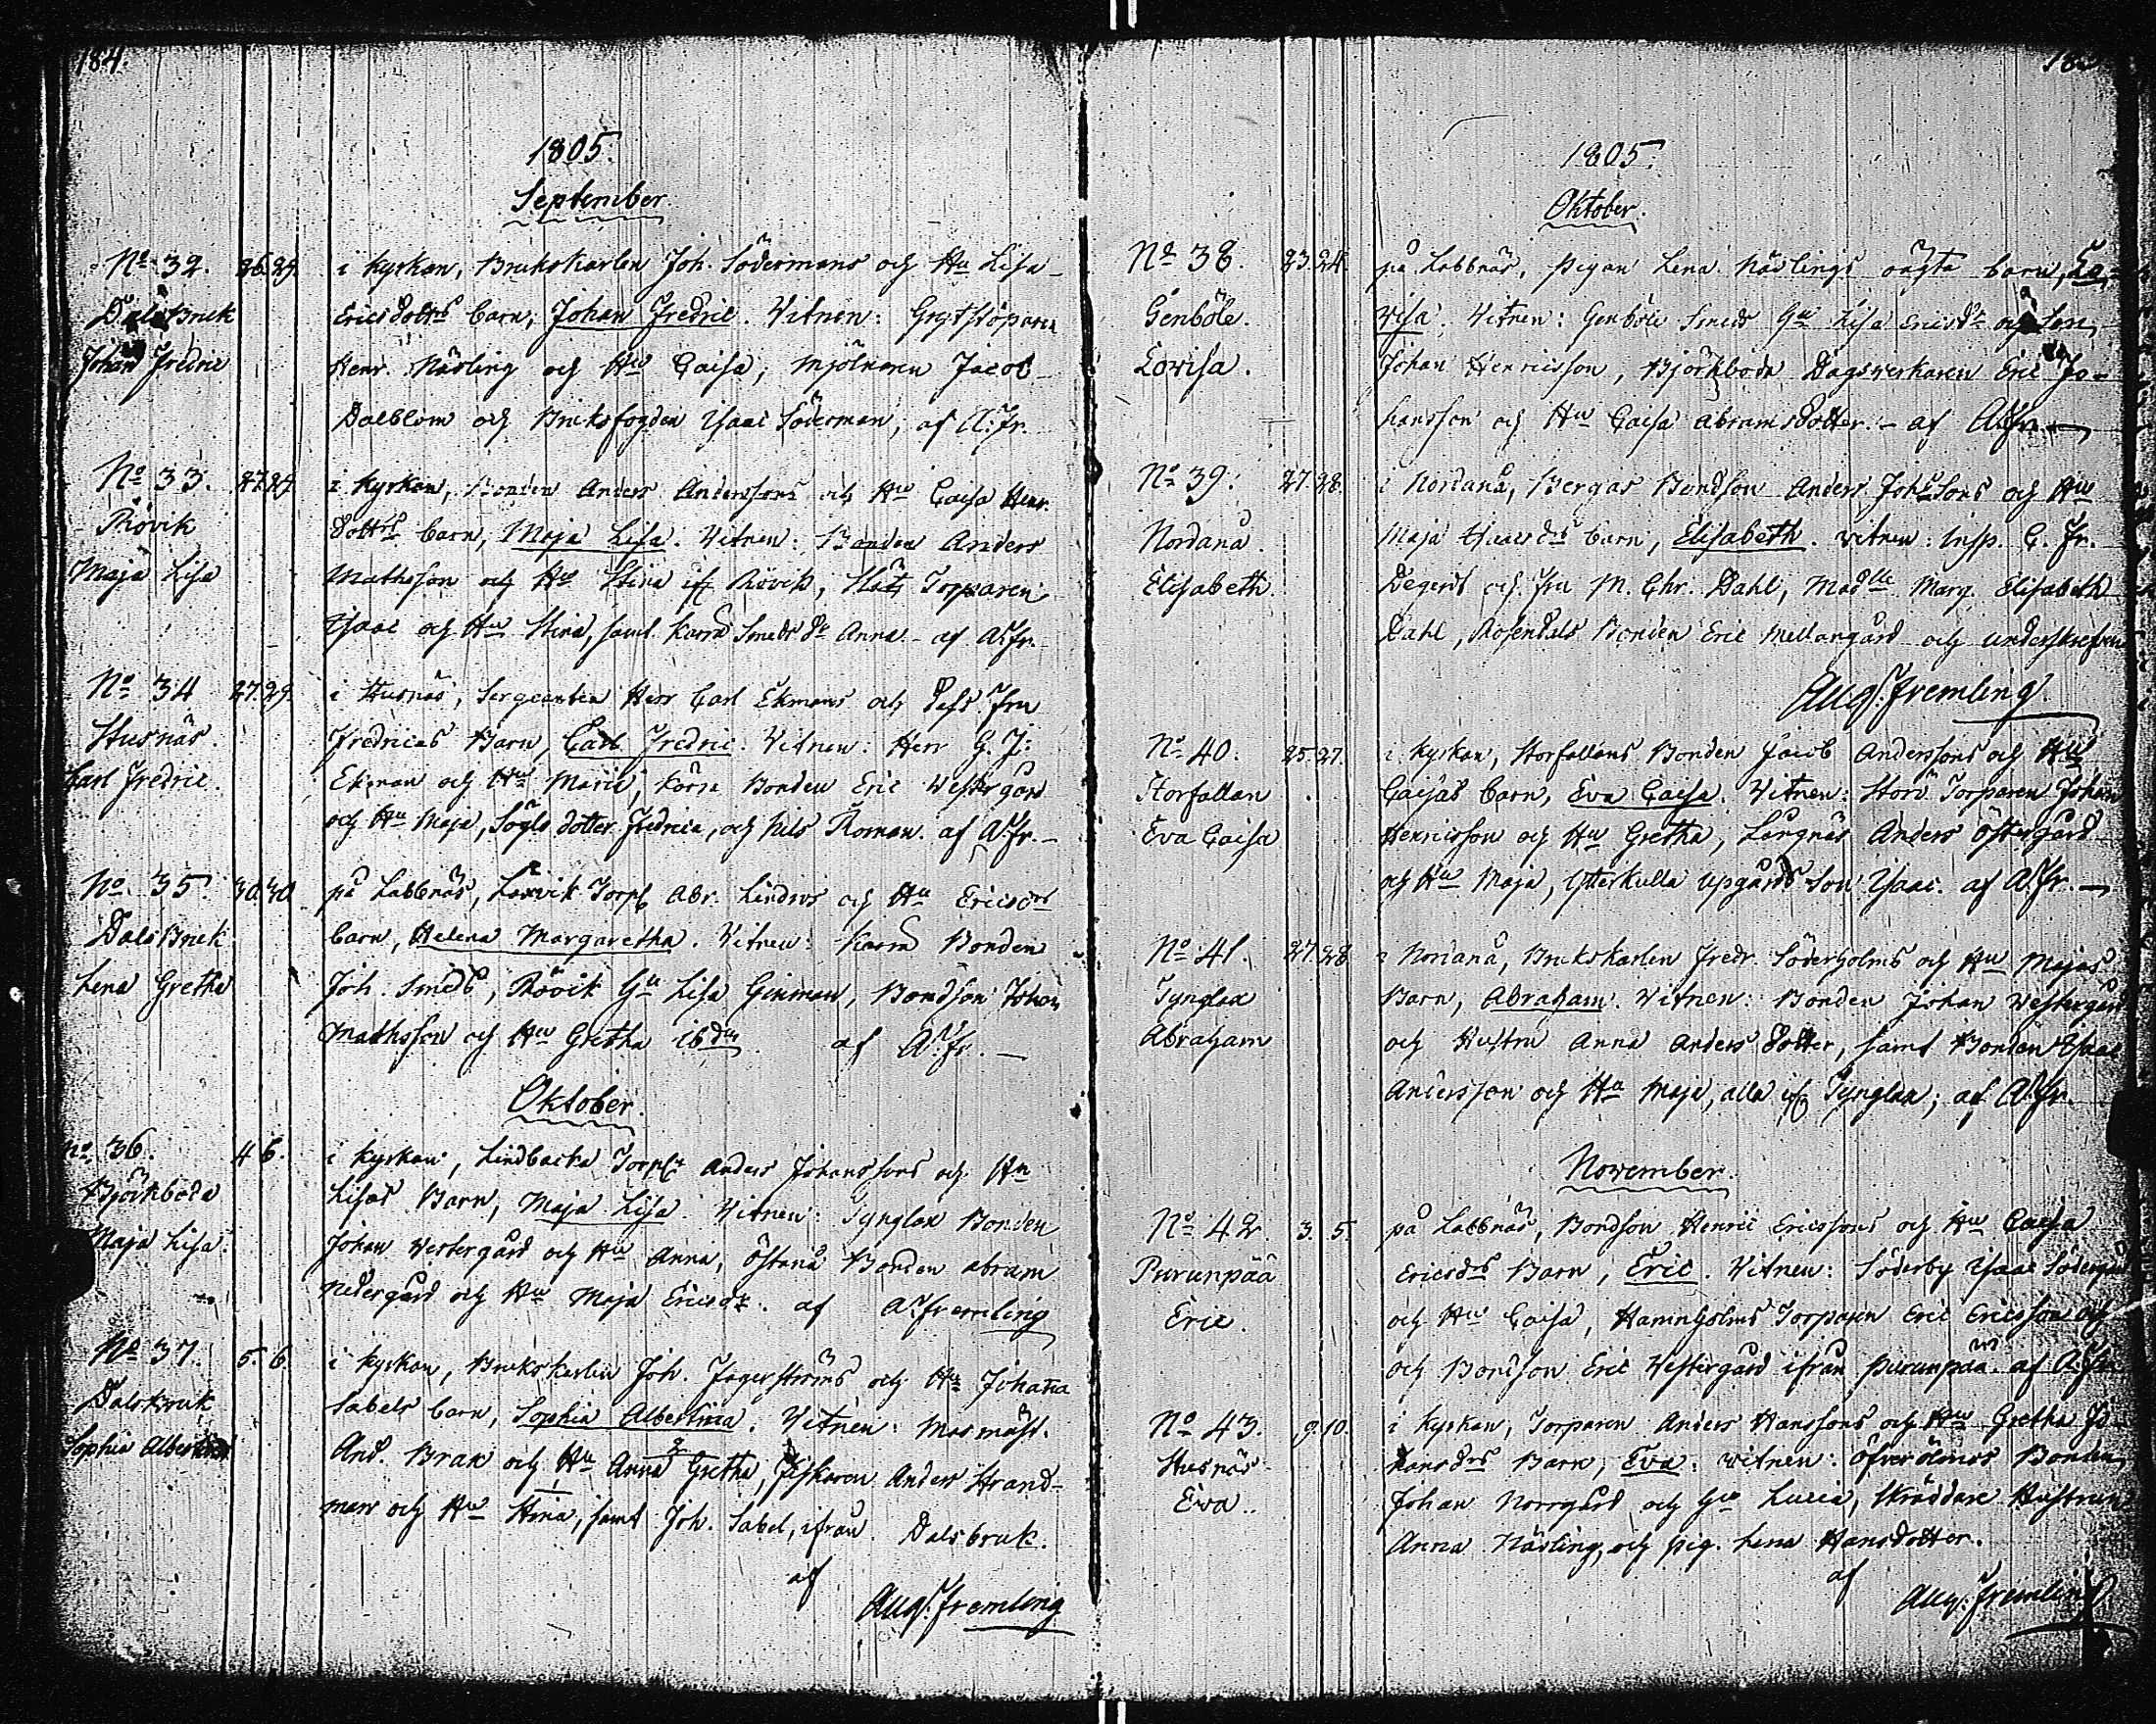 184.
1805.
September
No 32. 26. 29. i Kyrkan, Brukskarlen Joh. Södermans och Hu Lisa
DalsBruk Ericsdottrs barn, Johan Fredric. Vitnen: Grytstöparen
Johan Fredric Henr. Närling och Hu Caisa, mjölnaren Jacob
Dalblom och Bruksfogden Isaac Söderman, af A. Fr.
No 33. 27. 29. i Kyrkan, Bonden Anders Anderssons och Hu Caisa Henr.
Rövik dottrs barn, Maja Lisa. Vitnen: Bonden Anders
Maja Lisa Mathsson och Hu Stina ifr Rövik, Torparen
Isaac och Hu Stina, samt Karra Smeds dr Anna - af A. Fr.
No 34 27. 29. i Husnäs, Sergeanten Herr Carl Ekmans och Dess Fru
Husnäs. Fredricas Barn, Carl Fredric. Vitnen: Herr G. J:
Karl Fredric. Ekman och Hu Maria, Korra Bonden Eric Westergård
och Hu Maja, dotter Fredrica, och Nils Roman. af A. Fr.
No. 35. 30. 30. på Labbnäs, Lexvik Torp Abr. Linders och Hu Ericsdrs
DalsBruk barn, Helena Margaretha. Vitnen: Karra Bonden
Lena Gretha Joh. Smeds, Rövik Gu Lisa Ginman, Bondson Johan
Mathsson och Hu Gretha ibdm af A. Fr.
Oktober.
No. 36. 4. 6. i Kyrkan, Lindbacka Torp Anders Johanssons och Hu
Björkboda Lisas Barn, Maja Lisa. Vitnen: Tynglax Bonden
Maja Lisa. Johan Westergård och Hu Anna, Östanå Bonden Abram
Nedergård och Hu Maja Ericsdr. af A. Fremling
No 37. 5. 6. i Kyrkan, Brukskarlen Joh. Jagerströms och Hu Johanna
Dalsbruk Sabels barn, Sophia Albertina. Vitnen: Masmäst.
Sophia Albertina And. Brax och Hu Anna Gretha, Fiskaren Anders Strand-
man och Hu Stina, samt Joh. Sabel, ifrån Dalsbruk.
af
Aug. Fremling
1805.
Oktober.
No 38. 23. 24. på Labbnäs, Pigan Lena Närlings oägta barn, Lo-
Genböle. visa. Vitnen: Genböle Smeds Gu Lisa Ericsdr och Son
Lovisa. Johan Henricsson, Björkboda Dagsverkaren Eric Jo-
hansson och Hu Caisa Abramsdotter. - af A. Fr.
No 39. 27. 28. i Nordanå, Bergas Bondson Anders Johssons och Hu
Nordanå. Maja Isacsdrs barn, Elisabeth. Vitnen: Insp. C. Fr.
Elisabeth. Degerdt och Fru M. Chr. Dahl, Madlle Marg. Elisabeth
Dahl, Rosendals Bonden Eric Mellangård och underskrefven
Aug. Fremling.
No 40. 25. 27. i Kyrkan, Storfallans Bonden Jacob Anderssons och Hu
Storfallan Caisas barn, Eva Caisa. Vitnen: Storö Torparen Johan
Eva Caisa Henricsson och Hu Gretha, Långnäs Anders Östergård
och Hu Maja, Ytterkulla Upgårds Son Isaac. af A. Fr.
No 41. 27. 28. i Nordanå, Brukskarlen Fredr. Söderholms och Hu Majas
Tynglax Barn, Abraham. Vitnen: Bonden Johan Westergård
Abraham och Hustru Anna Anders dotter, samt Bonden Isaac
Andersson och Hu Maja, alla ifr Tynglax; af A. Fr.
November.
No 42. 3. 5. på Labbnäs, Bondson Henric Ericssons och Hu Caisa
Purunpää Ericsdrs Barn, Eric. Vitnen: Söderby Isaac Södergård
Eric. och Hu Caisa, Hammholms Torparen Eric Ericsson och
och Bondson Eric Westergård ifrån Purunpää. af A. Fr.
No 43. 9. 10. i Kyrkan, Torparen Anders Hanssons och Hu Gretha Jo-
Husnäs hansdrs Barn, Eva. Vitnen: Öfverölmos Bonden
Eva. Johan Norrgård och Gu Lucia, Skräddare Hustrun
Anna Närling, och pig. Lena Hansdotter.
af
Aug. Fremling